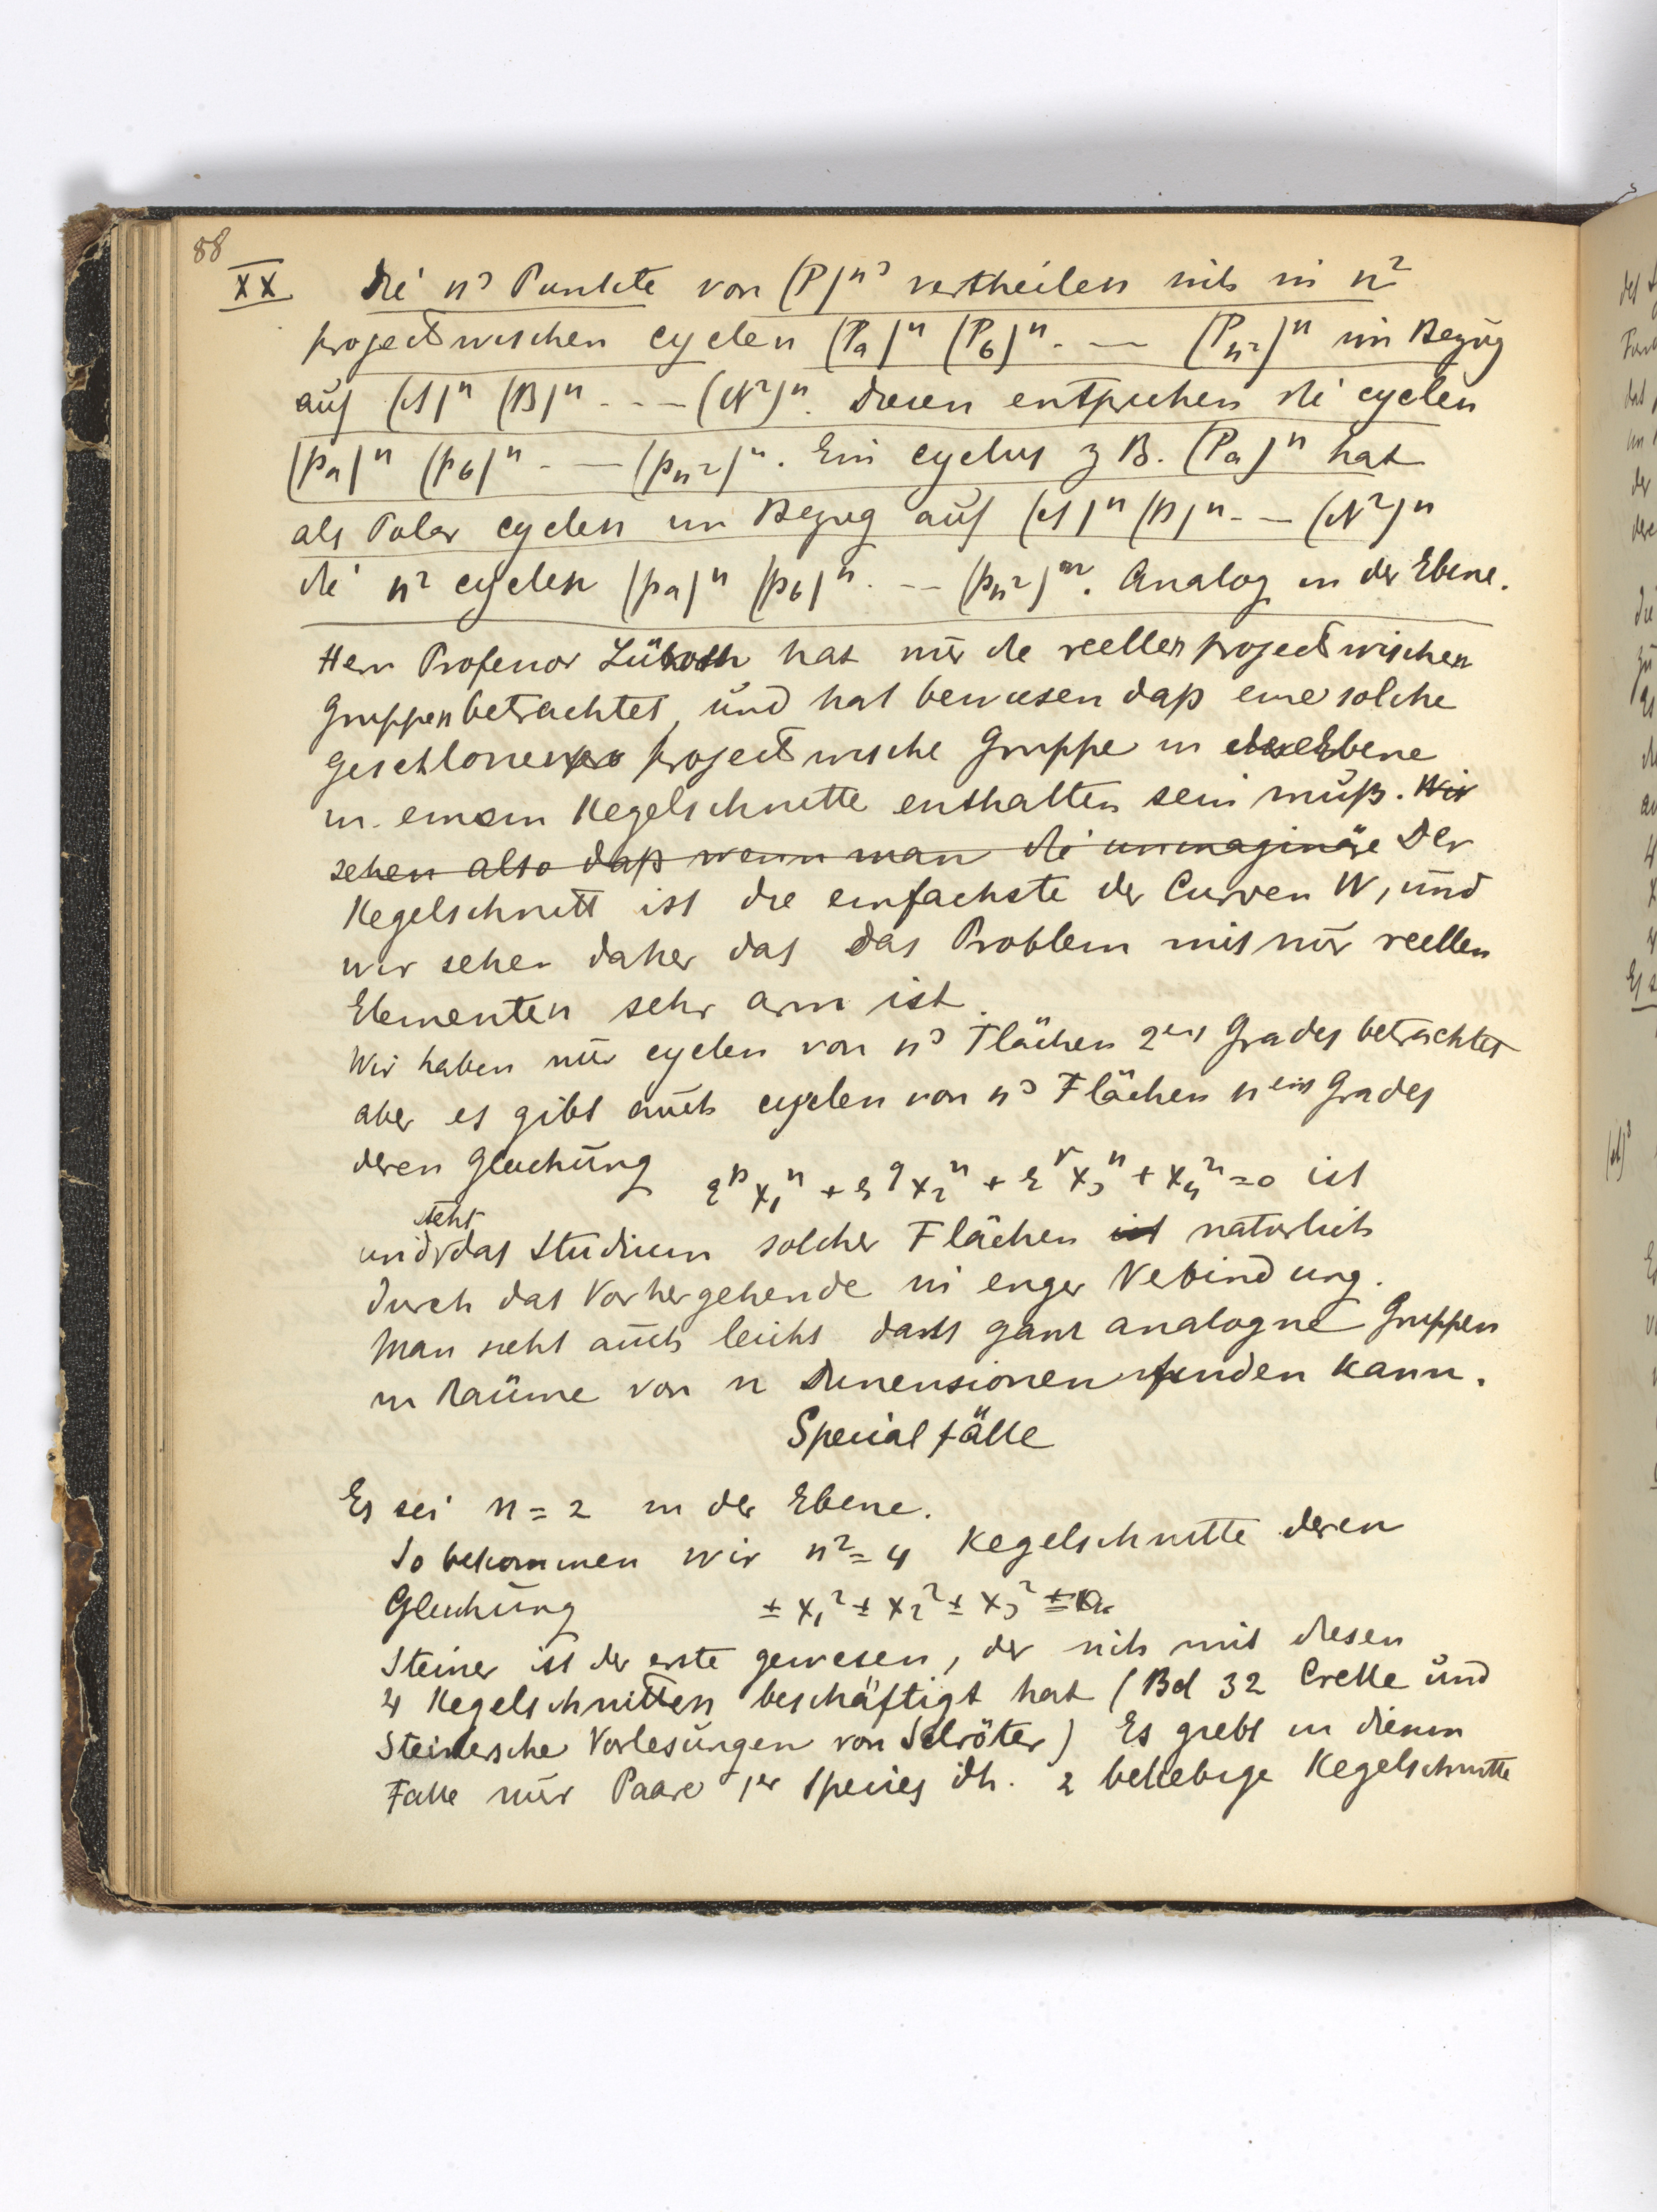 88
XX Die n³ Punkte von (P)ⁿ³ vertheilen sich in n²
projectivischen cyclen (Pa)ⁿ (Pb)ⁿ - — (Pn²)ⁿ im Bezug
auf (A)ⁿ (B)ⁿ - - — (N²)ⁿ. Diesen entsprechen die cyclen
(pa)ⁿ (pb)ⁿ - — (pn²)ⁿ. Ein cyclus z B. (Pa)ⁿ hat
als Polar cyclen im Bezug auf (A)ⁿ (B)ⁿ - — (N²)ⁿ
die n² cyclen (pa)ⁿ (pb)ⁿ - — (pn²)ⁿ. Analog in der Ebene.
Herr Professor Lüroth hat nur die reellen projectivischen
Gruppen betrachtet, und hat bewiesen daß eine solche
geschlossene projectivische Gruppe in der Ebene
in einem Kegelschnitte enthalten sein muß. Wir
sehen also daß wenn man die immaginäre Der
Kegelschnitt ist die einfachste der Curven W, und
wir sehen daher das das Problem mit nur reellen
Elementen sehr arm ist.
Wir haben nur cyclen von n³ Flächen 2ten Grades betrachtet
aber es gibt auch cyclen von n³ Flächen nten Grades
deren Gleichung εᵖx₁ⁿ + ε^q x₂ⁿ + εʳx₃ⁿ + x₄ⁿ = 0 ist
steht
und das Studium solcher Flächen ist natürlich
durch das Vorhergehende in enger Vebindung.
Man sieht auch leicht dass ganz analogne Gruppen
in Raüme von n Dimensionen finden kann.
Specialfälle
Es sei n = 2 in der Ebene.
So bekommen wir n² = 4 Kegelschnitte deren
Gleichung ± x₁² ± x₂² ± x₃² = 0.
Steiner ist der erste gewesen, der sich mit diesen
4 Kegelschnitten beschäftigt hat (Bd 32 Crelle und
Steinersche Vorlesungen von Schröter) Es giebt in diesem
Falle nur Paare 1er Species dh. 2 beliebige Kegelschnitte